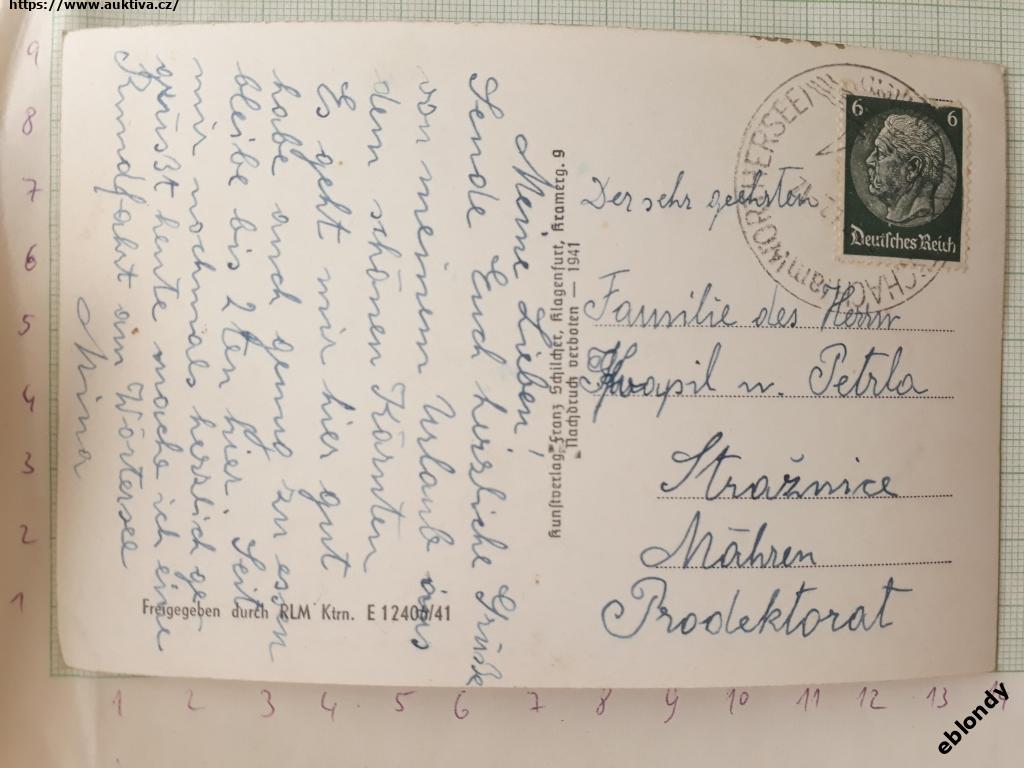 https://www.auktiva.cz/
Meine Lieben!
Sende Euch herzliche Grüsse
von meinem Urlaub aus
dem schönen Kärnten
Es geht mir hier gut
habe auch genug zu essen
bleibe bis 2ten hier. Seit
mir nochmals herzlich ge-
grüsst heute mache ich eine
Rundfahrt am Wörtersee
Mina
Freigegeben durch RLM Ktrn. E 12406/41
Kunstverlag Franz Schilcher, Klagenfurt, Kramerg. 9
Nachdruck verboten — 1941
6 6
Deutsches Reich
Der sehr geehrten
Familie des Herrn
Kvapil u. Petrla
Stražnice
Mähren
Prodektorat
9
8
7
6
5
4
3
2
1
1 2 3 4 5 6 7 8 9 10 11 12 13
eblondy